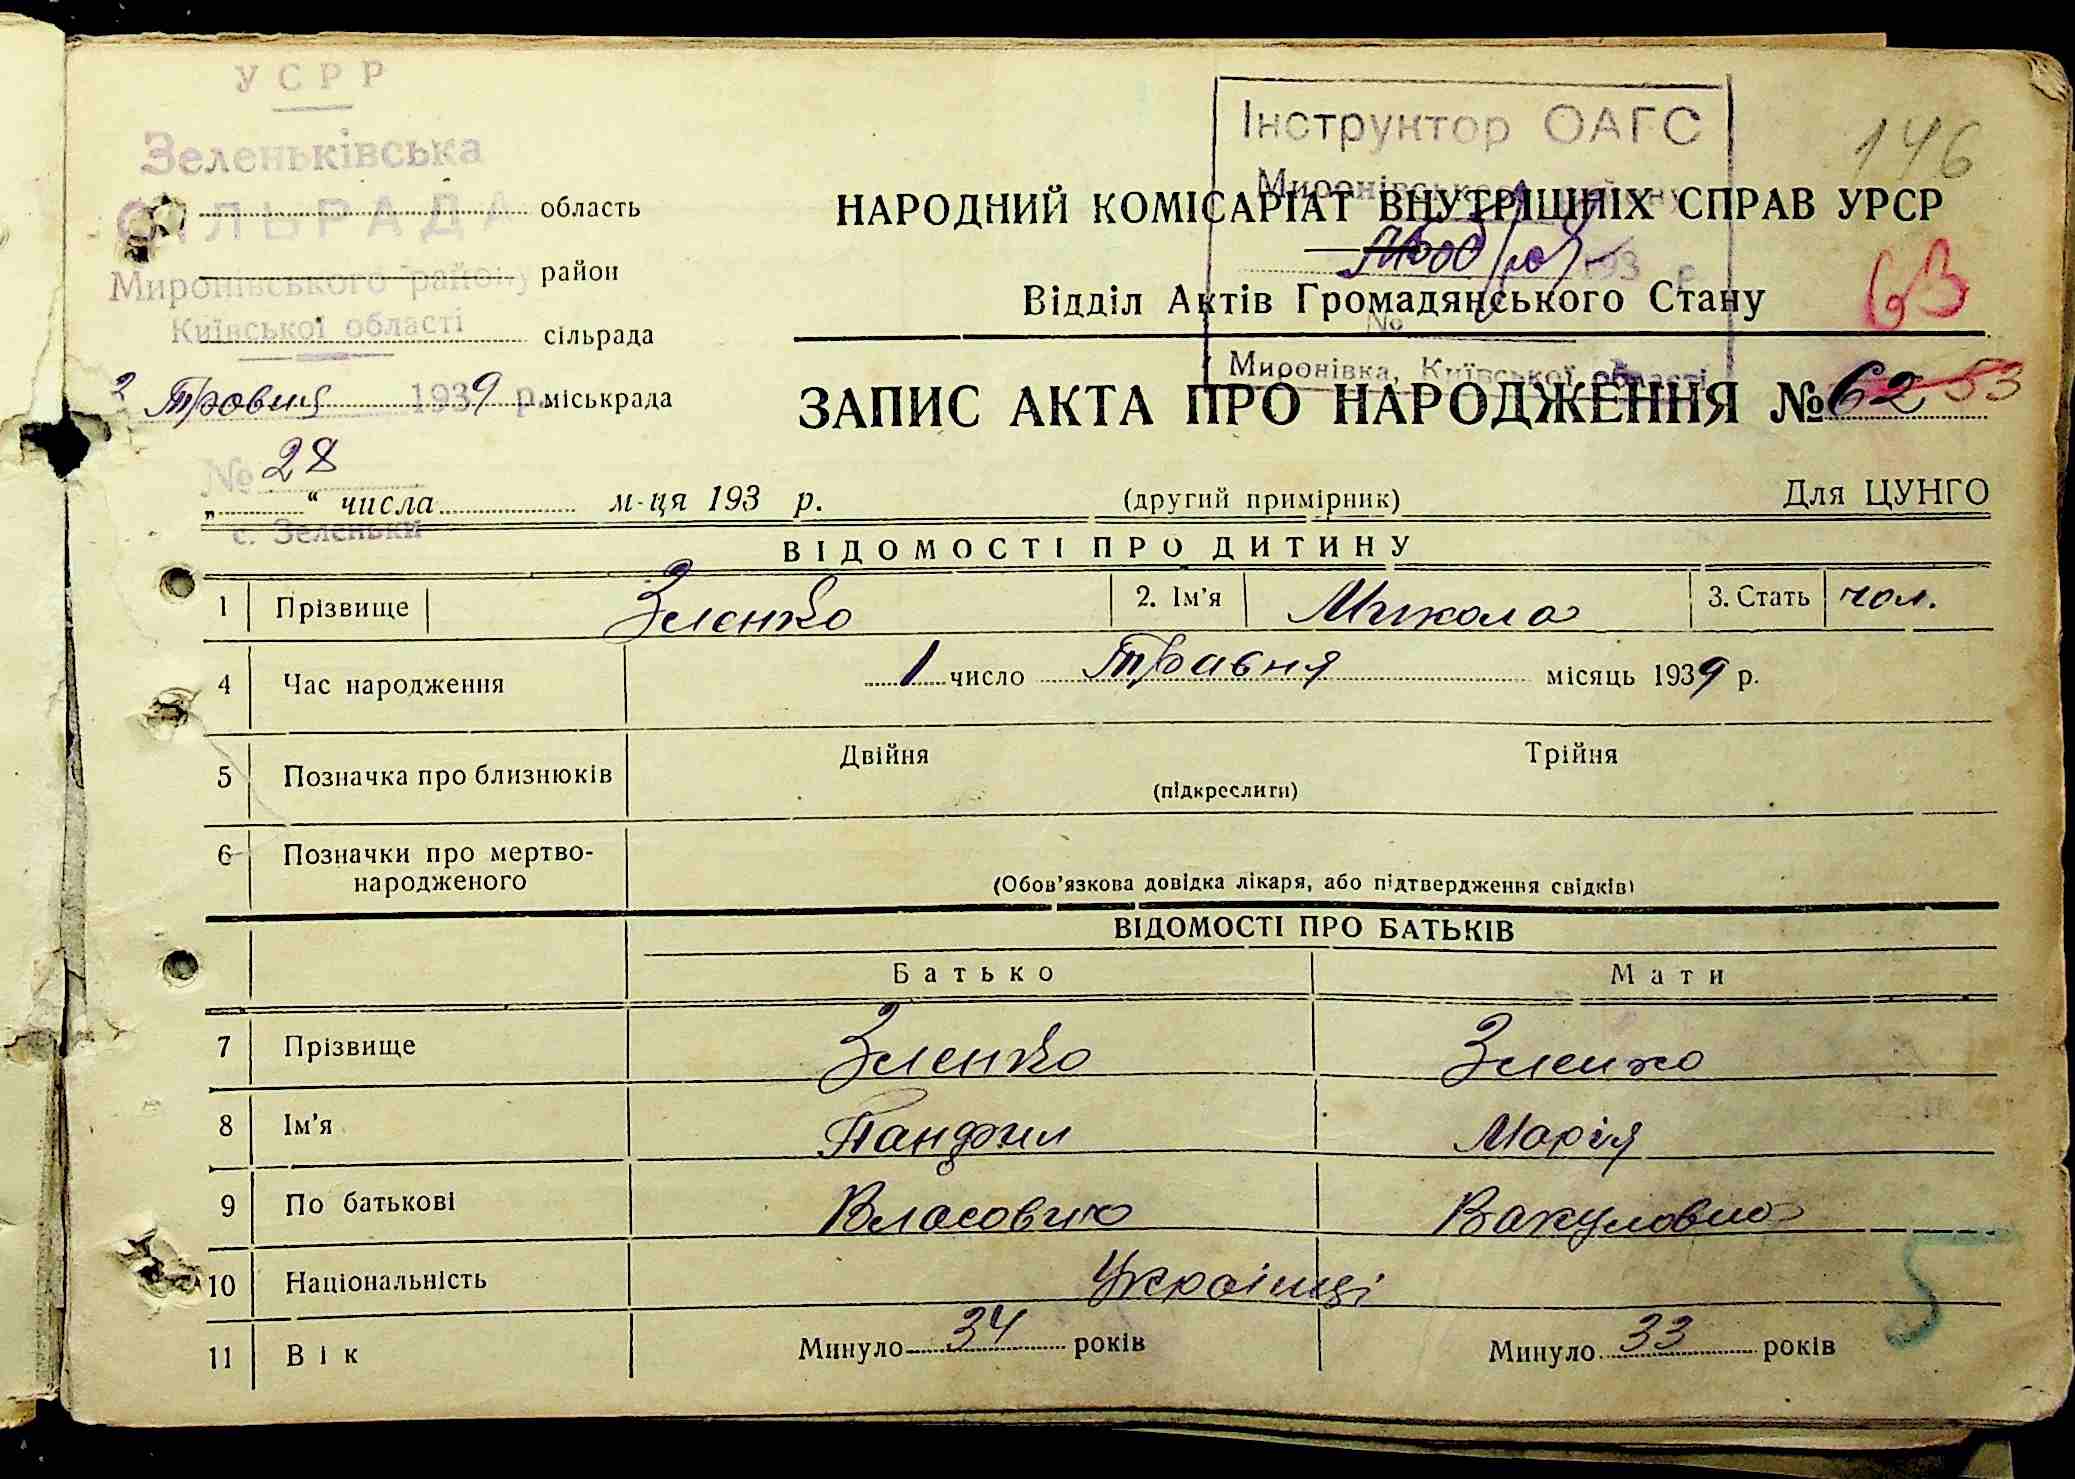 УСРР
Зеленьківська
СІЛЬРАДА
область
Миронівського району
район
Київської області
сільрада
2 Травня 1939 р. міськрада
№ 28
„ “ числа м-ця 193 р.
с. Зеленьки
Інструктор ОАГС
Миронівського району
193 р.
№
Миронівка, Київської області
146
НАРОДНИЙ КОМІСАРІАТ ВНУТРІШНІХ СПРАВ УРСР
Відділ Актів Громадянського Стану
63
ЗАПИС АКТА ПРО НАРОДЖЕННЯ № 62 53
(другий примірник)
Для ЦУНГО
ВІДОМОСТІ ПРО ДИТИНУ
1 Прізвище Зленко 2. Ім’я Микола 3. Стать чол.
4 Час народження 1 число Травня місяць 1939 р.
5 Позначка про близнюків Двійня Трійня
(підкреслиги)
6 Позначки про мертво-
народженого
(Обов’язкова довідка лікаря, або підтвердження свідків)
ВІДОМОСТІ ПРО БАТЬКІВ
Батько Мати
7 Прізвище Зленко Зленко
8 Ім’я Панфил Марія
9 По батькові Власович Вакуловна
10 Національність Українці
11 Вік Минуло 34 років Минуло 33 років
5